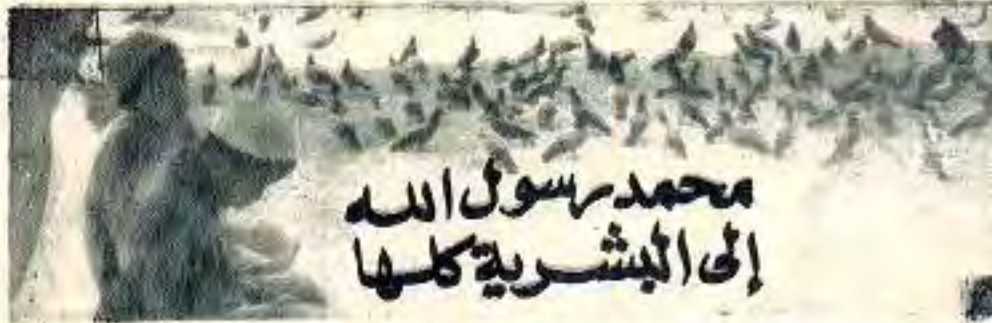 محمد رسول الله
إلى البشرية كلها